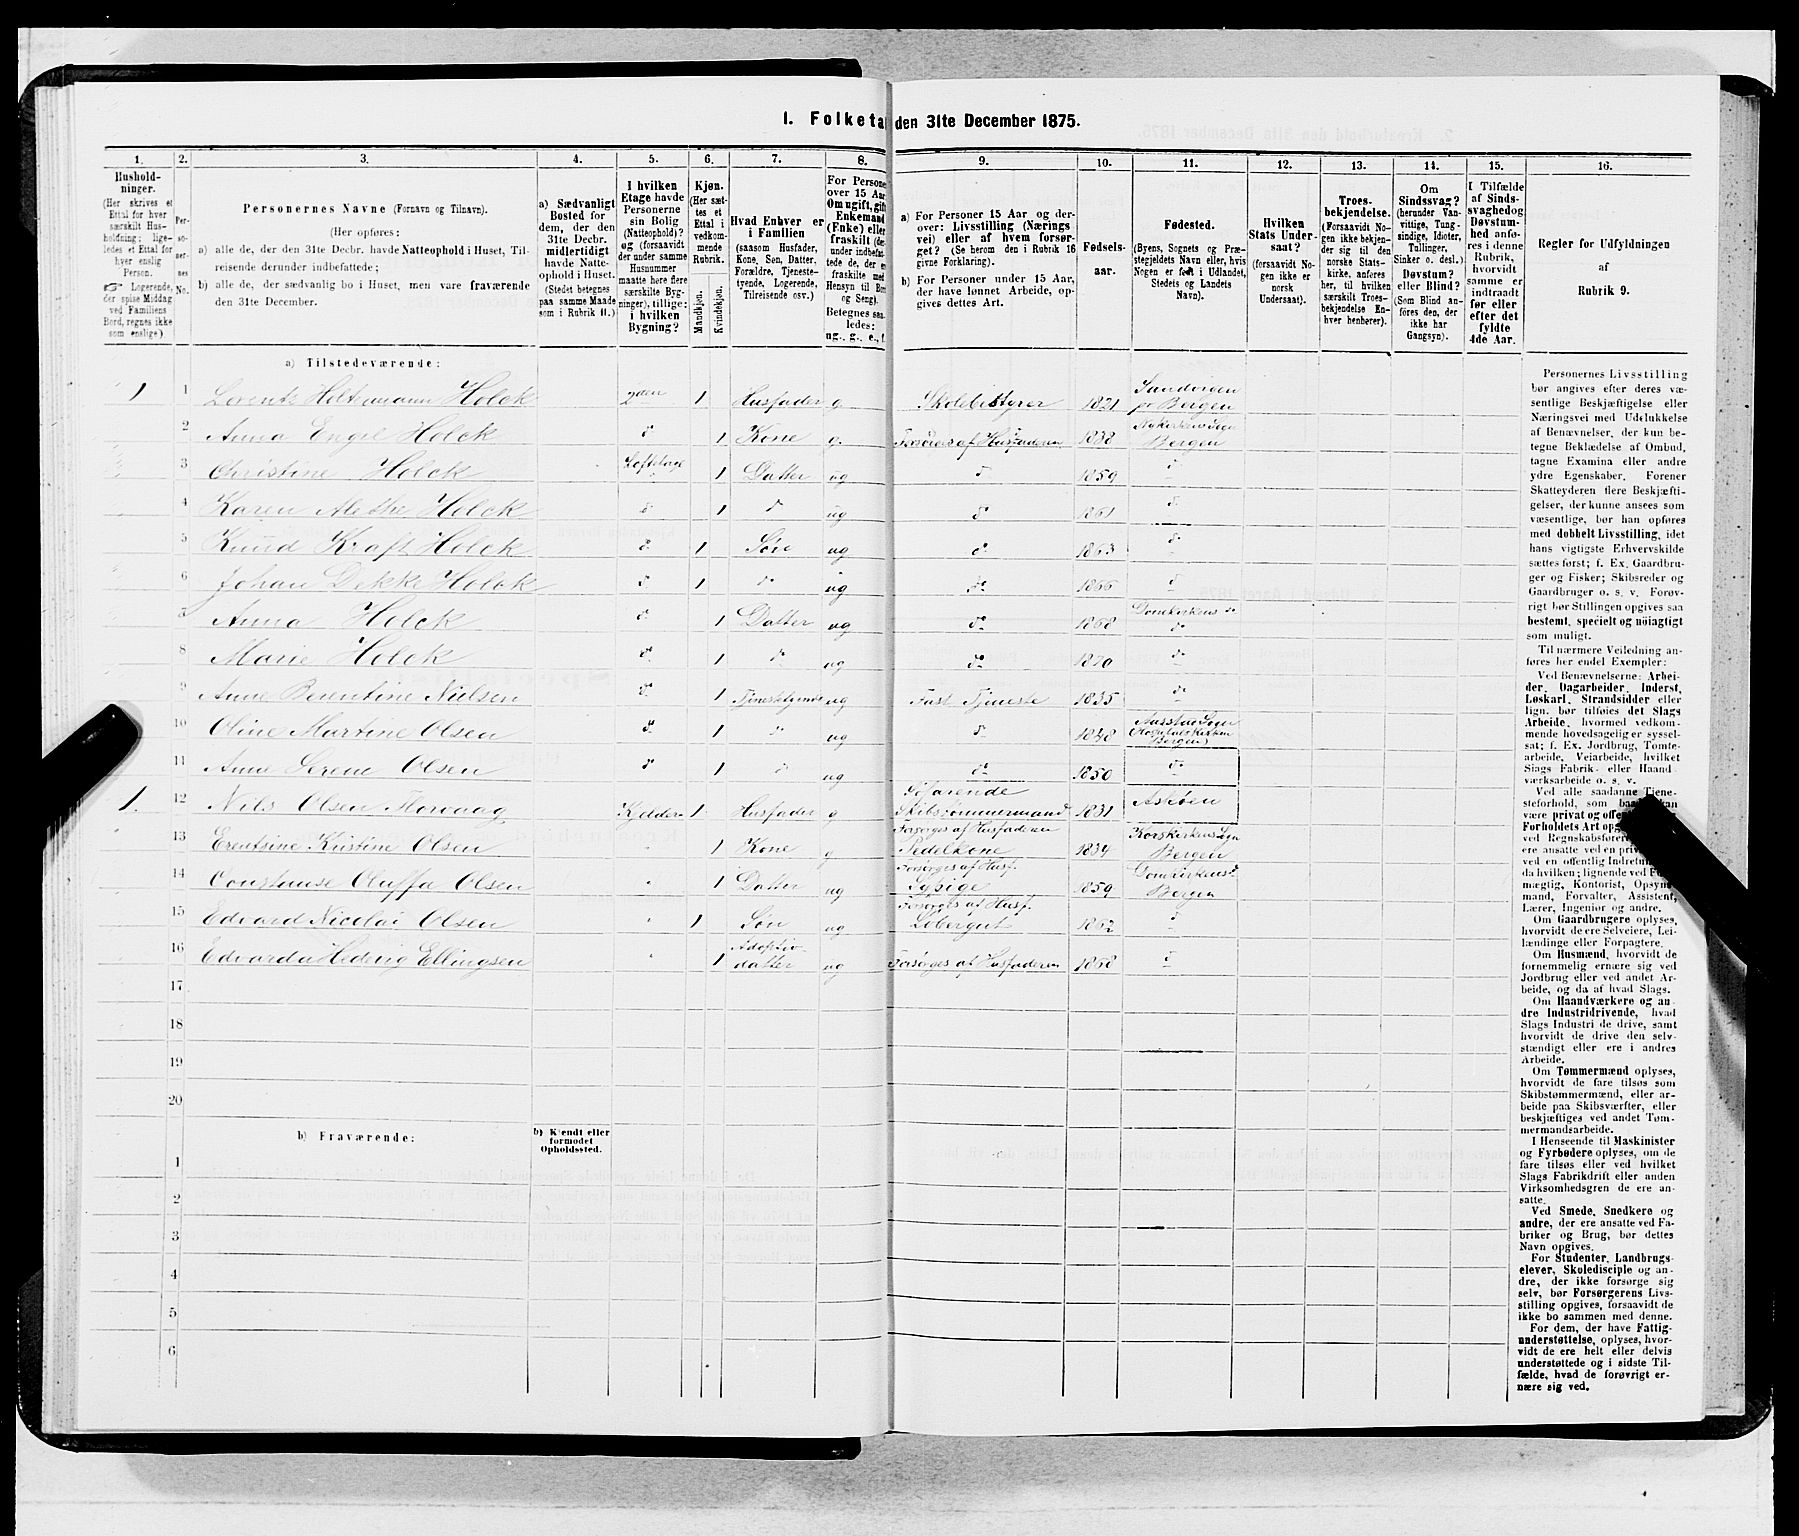 I. Folketa den 31te December 1875.
1. 2. 3. 4. 5. 6. 7. 8. 9. 10. 11. 12. 13. 14. 15. 16.
Hushold-
ninger.
(Her skrives et
Ettal for hver
særskilt Hus-
holdning; lige-
ledes et Ettal for
hver enslig
Person.
☞ Logerende,
der spise Middag
ved Familiens
Bord, regnes ikke
som enslige.)
Per-
so-
ner-
nes
No.
Personernes Navne (Fornavn og Tilnavn).
(Her opføres:
a) alle de, der den 31te Decbr. havde Natteophold i Huset, Til-
reisende derunder indbefattede;
b) alle de, der sædvanlig bo i Huset, men vare fraværende
den 31te December.
a) Sædvanligt
Bosted for
dem, der den
31te Decbr.
midlertidigt
havde Natte-
ophold i Huset.
(Stedet betegnes
paa samme Maade
som i Rubrik 11.)
I hvilken
Etage havde
Personerne
sin Bolig
(Natteophold)?
og (forsaavidt
der under samme
Husnummer
maatte høre flere
særskilte Byg-
ninger), tillige:
i hvilken
Bygning?
Kjøn.
(Her sæt-
tes et
Ettal i
vedkom-
mende
Rubrik.
Mandkjøn.
Kvindekjøn.
Hvad Enhver er
i Familien
(saasom Husfader,
Kone, Søn, Datter,
Forældre, Tjeneste-
tyende, Logerende,
Tilreisende osv.)
For Persone
over 15 Aar
Om ugift, gift
Enkemand
(Enke) eller
fraskilt (de
under indbefat-
tede de, der er
fraskilte med
Hensyn til Bor
og Seng).
Betegnes saa-
ledes:
ug., g., e., f.
a) For Personer 15 Aar og der-
over: Livsstilling (Nærings
vei) eller af hvem forsør-
get? (Se herom den i Rubrik 16
givne Forklaring).
b) For Personer under 15 Aar,
der have lønnet Arbeide, op-
gives dettes Art.
Fødsels-
aar.
Fødested.
(Byens, Sognets og Præ-
stegjeldets Navn eller, hvis
Nogen er født i Udlandet,
Stedets og Landets
Navn).
Hvilken
Stats Under-
saat?
(forsaavidt No-
gen ikke er
norsk
Undersaat).
Troes-
bekjendelse.
(Forsaavidt No-
gen ikke bekjen-
der sig til den
norske Stats-
kirke, anføres
her, til hvilken
særskilt Troes-
bekjendelse En-
hver henhører).
Om
Sindssvag?
(herunder Van-
vittige, Tung-
sindige, Idioter,
Tullinger,
Sinker o. desl.)
Døvstum?
eller Blind?
(Som Blind an-
føres den, der
ikke har
Gangsyn).
I Tilfælde
af Sinds-
svaghed og
Døvstum-
hed anfø-
res i denne
Rubrik,
hvorvidt
samme er
indtraadt
før eller
efter det
fyldte
4de Aar.
Regler for Udfyldningen
af
Rubrik 9.
a) Tilstedeværende:
1 1 Lorentz Holtermann Holck 2den 1 Husfader g Skolebestyrer 1821 Sandvigen pr Bergen
2 Anna Engel Holck d 1 Kone g. Forsørges af Husfaderen 1838 Nykirkens Sogn Bergen
3 Christine Holck d 1 Datter ug d 1859 d
4 Karen Alethe Holck d 1 d ug d 1861 d
5 Knud Kraft Holck d 1 Søn ug d 1863 d
6 Johan Dekke Holck d 1 d ug d 1866 d
Anna Holck d 1 Datter ug d 1868 Domkirkens do
8 Marie Holck d 1 d ug d 1870 d
9 Anne Berentine Nielsen d 1 Tjenestetyende ug Fast Tjeneste 1835 d
10 Oline Martine Olsen d 1 d ug d 1848 Bergen)
11 Anne Serene Olsen d 1 d ug d 1850 d
1. 12 Nils Olsen Florvaag Kjelder 1 Husfader g Søfarende Skibstømmermand 1831 Askøen
13 Erentsine Kristine Olsen 1 Kone g Forsørges af Husfaderen 1834 Korskirkens Sogn Bergen
14 Constanse Oluffa Olsen 1 Datter ug Forsørges af Husf. Sypige 1859 Domkirkens d Bergen
15 Edvard Nicolai Olsen 1 Søn ug Forsørges af Husf. Løbergut 1862 d
16 Edvarda Hedvig Ellingsen 1 Adoptiv- datter ug Forsørges af Husfaderen 1868 d
17
18
19
20
b) Fraværende:
b) Kjendt eller
formodet
Opholdssted.
1
2
3
4
5
6
Personernes Livsstilling
bør angives efter deres væ-
sentlige Beskjæftigelse eller
Næringsvei med Udelukkelse
af Benævnelser, der kun be-
tegne Beklædelse af Ombud,
tagne Examina eller andre
ydre Egenskaber. Forener
Skatteyderen flere Beskjæfti-
gelser, der kunne ansees som
væsentlige, bør han opføres
med dobbelt Livsstilling, idet
hans vigtigste Erhvervskilde
sættes først; f. Ex. Gaardbru-
ger og Fisker; Skibsreder og
Gaardbruger o. s. v. Forøv-
rigt bør Stillingen opgives saa
bestemt, specielt og nöiagtigt
som muligt.
Til nærmere Veiledning an-
føres her endel Exempler:
Ved Benævnelserne: Arbei-
der, Dagarbeider, Inderst,
Løskarl, Strandsidder eller
lign. bør tilføies det Slags
Arbeide, hvormed vedkom-
mende hovedsagelig er syssel-
sat; f. Ex. Jordbrug, Tomte-
arbeide, Veiarbeide, hvilket
Slags Fabrik- eller Haand
værksarbeide o. s. v.
Ved alle saadanne Tjene-
steforhold, som baade kan
være privat og offe
Forholdets Art op
ved Regnskabsfø
ere ansatte ved en priv
ved en offentlig Indretni
da hvilken; lignende ved F
mægtig, Kontorist, Opsyns
mand, Forvalter, Assistent,
Lærer, Ingeniør og andre.
Om Gaardbrugere oplyses,
hvorvidt de ere Selveiere, Lei-
lændinge eller Forpagtere.
Om Husmænd, hvorvidt de
fornemmelig ernære sig ved
Jordbrug eller ved andet Ar-
beide, og da af hvad Slags.
Om Haandværkere og an-
dre Industridrivende, hvad
Slags Industri de drive, samt
hvorvidt de drive den selv-
stændigt eller ere i andres
Arbeide.
Om Tømmermænd oplyses,
hvorvidt de fare tilsøs som
Skibstømmermænd, eller ar-
beide paa Skibsværfter, eller
beskjæftiges ved andet Tøm-
mermandsarbeide.
I Henseende til Maskinister
og Fyrbødere oplyses, om de
fare tilsøs eller ved hvilket
Slags Fabrikdrift eller anden
Virksomhedsgren de ere an-
satte.
Ved Smede, Snedkere og
andre, der ere ansatte ved Fa-
briker og Brug, bør dettes
Navn opgives.
For Studenter, Landbrugs-
elever, Skoledisciple og an-
dre, der ikke forsørge sig
selv, bør Forsørgerens Livs-
stilling opgives, forsaavidt de
ikke bo sammen med denne.
For dem, der have Fattig-
understøttelse, oplyses, hvor-
vidt de ere helt eller delvis
understøttede og i sidste Til-
fælde, hvad de forøvrigt er-
nære sig ved.